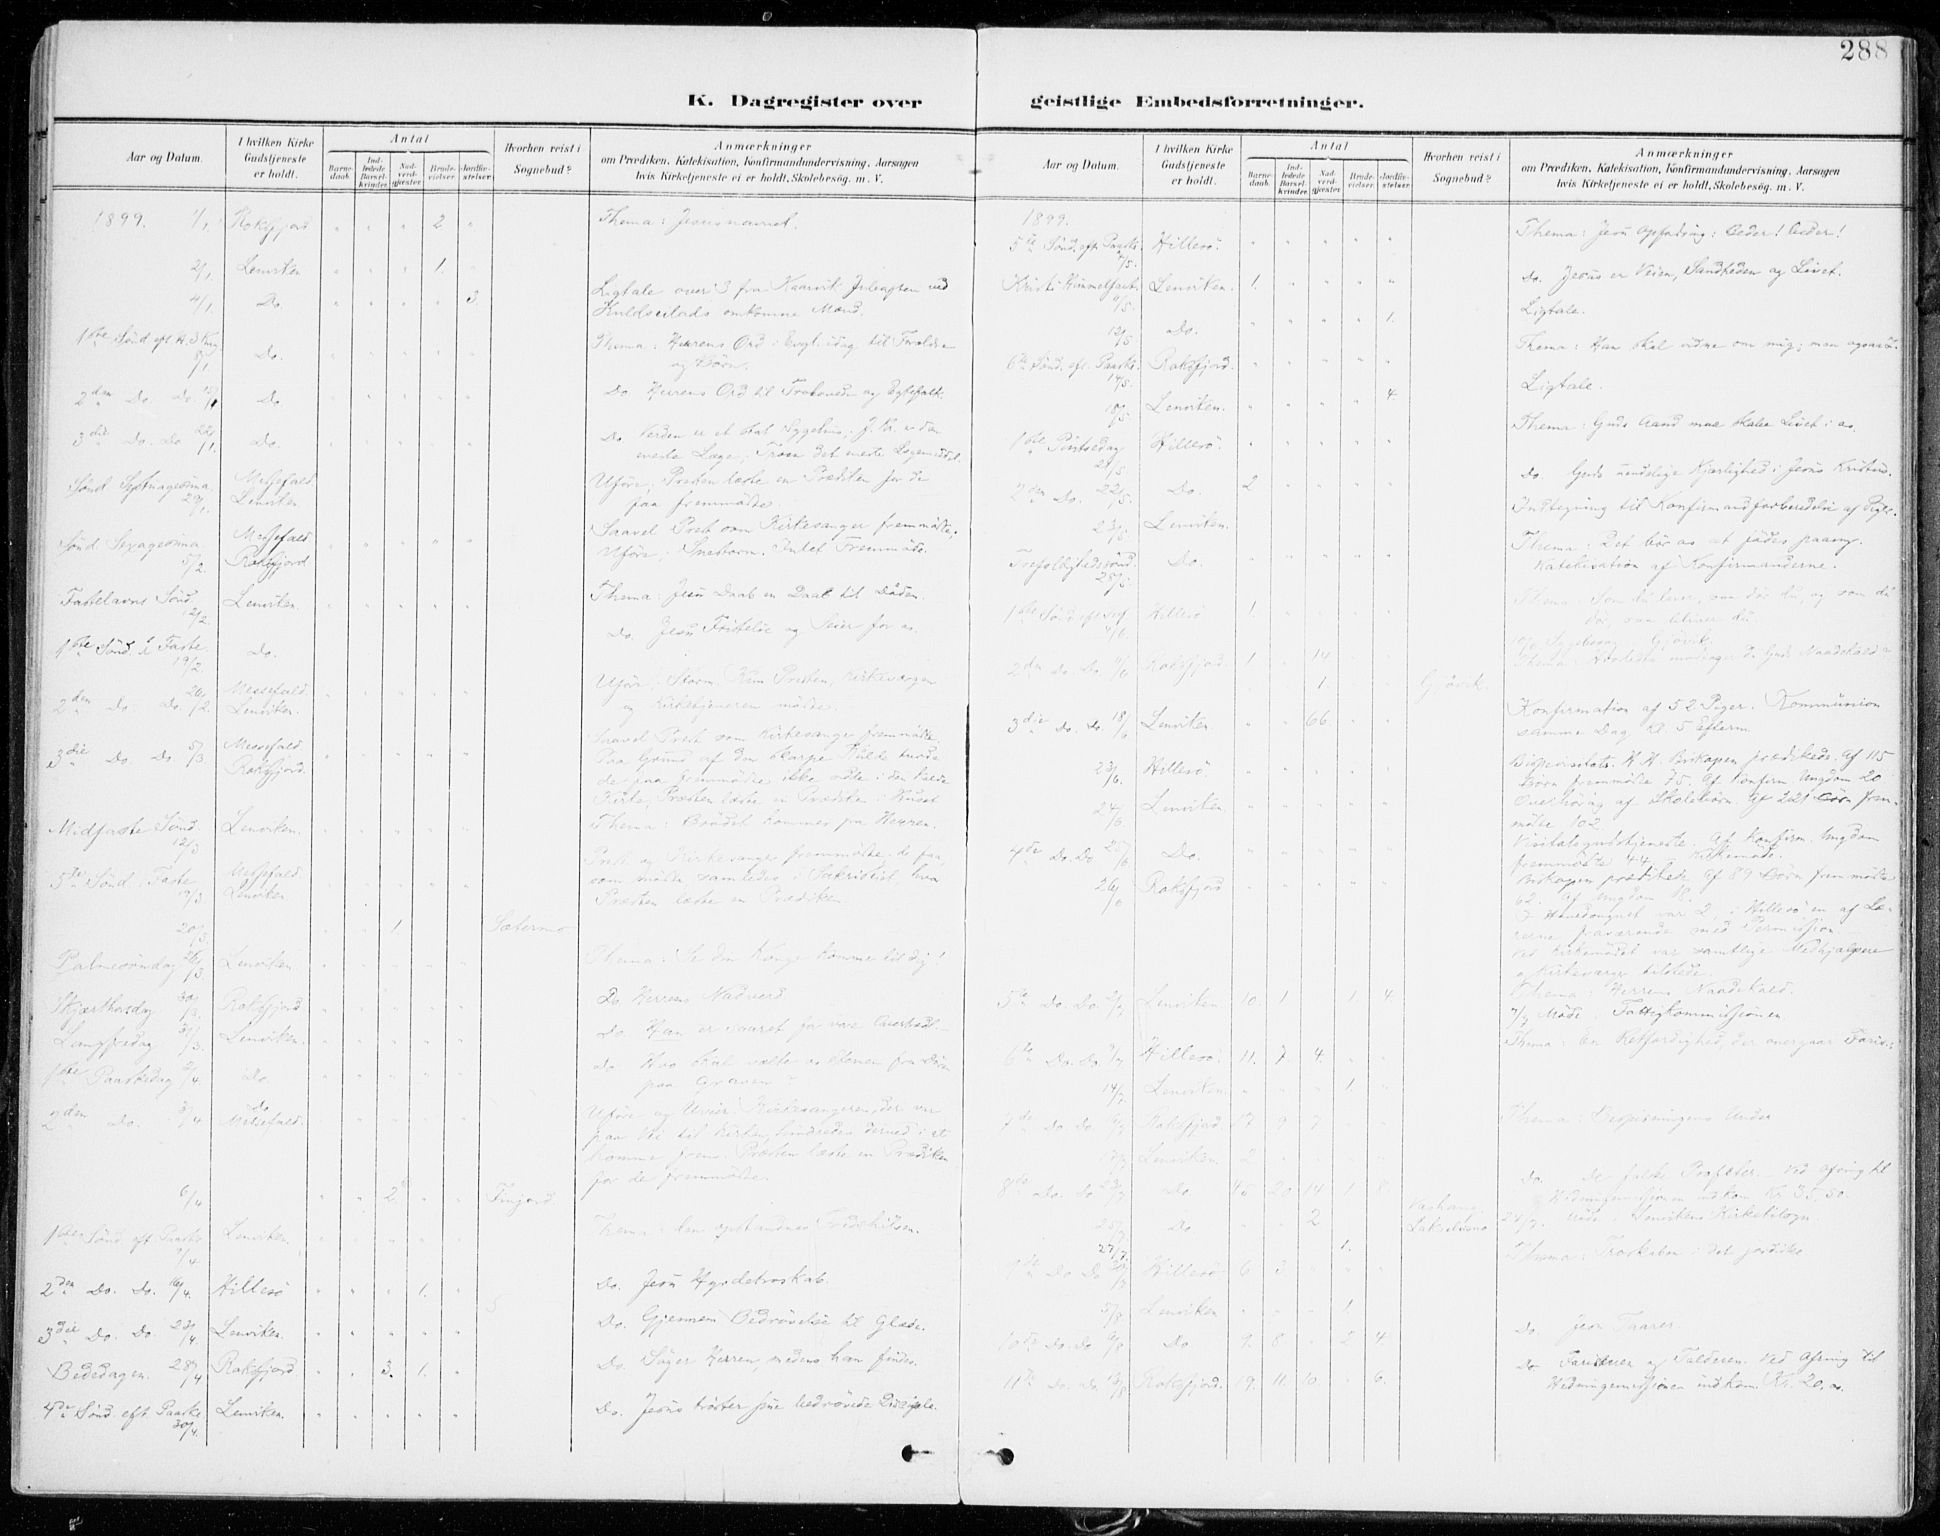 288
K. Dagregister over geistlige Embedsforretninger.
Aar og Datum.
I hvilken Kirke Gudstjeneste er holdt.
Antal
Barne-daab.
Ind-ledede Barsel-kvinder.
Nad-verd-gjester.
Brude-vielser.
Jordfæ-stelser.
Hvorhen reist i Sognebud?
Anmærkninger
om Prædiken, Katekisation, Konfirmandundervisning, Aarsagen
hvis Kirketjeneste ei er holdt, Skolebesøg. m. V.
1899. 1/1. Roksfjord " " " 2 " Thema: Jesusnavnet.
2/1. Lenviken " " " 1. "
4/1 Do. " " " " 3. Ligtale over 3 fra Kaarvik Juleaften ved
omkomne Mænd.
1ste Sönd. eft. H. 3 Kong. 8/1. Do. Thema: Herrens Ord i Evgl. idag til Forældre
og Børn.
2den Do. Do. 15/1 Do. Do. Herrens Ord til og Egtefolk.
3die Do. Do. 22/1. Do. Do. Verden er et stort Sygehus; J. Kr. er den
eneste Læge; Troen det eneste Lægemiddel.
Sönd. Septuagesima 29/1. Messefald Lenviken. Uføre; Presten læste en Prædiken for de
faa fremmødte.
Sönd. Sexagesima 5/2. Messefald Roksfjord Saavel Prest som Kirkesanger fremmødte.
Uføre; Snestorm. Intet Fremmøde.
Fastelavns Sönd. 12/2. Lenviken. Thema: Jesu Daab en Daab til Döden.
1ste Sönd. i Faste 19/2 Do. Do. Jesu Fristelse og Seier for os.
2den Do. Do. 26/2. Messefald Lenviken. Uføre; Storm. Kun Presten, Kirkeværgen
og Kirketjeneren mödte.
3die Do Do 5/3. Messefald Roksfjord. Saavel Prest som Kirkesanger fremmødte.
Paa Grund af den skarpe Kulde turde
de faa fremmødte ikke sidde i den kolde
Kirke, Præsten læste en Prædiken i Huset
Midfaste Sönd. 12/3 Lenviken. Thema: Brödet kommer fra Herren.
5te Sönd. i Faste 19/3 Messefald Lenviken Prest og Kirkesanger fremmødte. de faa,
som mødte, samledes i Sakristiet, hvor
Præsten læste en Prædiken.
20/3. 1 Sætermo
Palmesöndag 26/3. Lenviken. Thema: Se din Konge kommer til dig!
Skjærthorsdag 30/3. Roksfjord Do. Herrens Nadverd.
Langfredag 31/3. Lenviken. Do. Han er saaret for vore Overtræd.
1ste Paaskedag 2/4. Do. Do. Hvo skal vælte os Stenen fra Dören
paa Graven?
2den Do. 3/4 Do. Messefald. Uføre og Uveir. Kirkesangeren, der var
paa Vei til Kirken, hindredes derved i at
komme frem. Præsten læste en Prædiken
for de fremmødte.
6/4 " " 2 " " Finjord
1ste Sönd. eft. Paaske 9/4. Lenviken. Thema: den opstandnes Fredshilsen.
2den Do. Do. 16/4. Hillesö " " " 1. " Do. Jesu Hyrdetroskab.
3die Do. Do. 23/4. Lenviken. Do. Gjennem Bedrøvelse til Glæde.
Bededagen. 28/4 Roksfjord " " 3. 1. " Do. Søger Herren, medens han findes.
4de Sönd. eft. Paaske 30/4. Lenviken. Do. Jesus trøster sine bedrøvede Disciple.
Aar og Datum.
I hvilken Kirke Gudstjeneste er holdt.
Antal
Barne-daab.
Ind-ledede Barsel-kvinder.
Nad-verd-gjester.
Brude-vielser.
Jordfæ-stelser.
Hvorhen reist i Sognebud?
Anmærkninger
om Prædiken, Katekisation, Konfirmandundervisning, Aarsagen
hvis Kirketjeneste ei er holdt, Skolebesøg. m. V.
1899.
5te Sönd. eft. Paaske 7/5. Hillesö. Thema: Jesu Opfordring: Beder! Beder!
Kristi Himmelfart 11/5. Lenviken. 1. " " " " Do. Jesus er Veien, Sandheden og Livet.
12/5. Do. " " " " 1. Ligtale.
6te Sönd. eft. Paaske. 14/5. Roksfjord. Thema: Han skal vidne om mig; men ogsaa I.
18/5. Lenviken. " " " " 4. Ligtale.
1ste Pintsedag 21/5 Hillesö. Thema: Guds Aand maa skabe Livet i os.
2den Do. 22/5. Do. 2 " " " " Do. Guds uendelige Kjærlighed i Jesus Kristus.
23/5. Lenviken. Indtegning til Konfirmandforberedelse af Piger.
Trefoldighedssönd. 28/5. Do. Thema: Det bør os at fødes paany.
Katekisation af Konfirmanderne.
1ste Sönd. eft. Tref. 4/6 Hillesö 1. Thema: Som du lever, saa dör du, og som du
dör, saa bliver du.
2den Do. Do. 11/6 Roksfjord. 1 " 14 " "
1. Gjövik.
3die Do. Do. 18/6 Lenviken. " " 66 " " Konfirmation af 52 Piger. Kommunion
samme Dag Kl. 5 Efterm.
23/6. Hillesö. Bispevisitats. H. H. Biskopen prædikede. Af 115
Börn fremmødte 75. Af Konfirm. Ungdom 20
24/6. Lenviken. Overhøring af Skolebörn. Af 221 Börn frem-
mødte 102.
4de Do. Do 25/6 Do. Visitatsgudstjeneste. Af Konfirm. Ungdom
fremmødte 44. Kirkemøde.
26/6 Roksfjord Biskopen prædikede. Af 89 Börn fremmødte
62. Af Ungdom 18.
I Hovedsognet var 2, i Hillesö en af Læ-
rerne fraværende med Permission
Ved Kirkemødet var samtlige Medhjælpere
og Kirkeværger tilstede.
5te Do. Do. 2/7 Lenviken 10. 1 " 1. 4. Thema: Herrens Naadekald.
7/7 Møde i Fattigkommissionen
6te Do. Do. 9/7 Hillesö. 11. 7. 4. " " Thema: En Retfærdighed, der overgaar Faris.:
14/7. Lenviken. " " " 1. "
7de Do. Do. 16/7 Roksfjord. 17 9 7 " " Thema: Bespisningens Under
17/7 Lenviken. 2
8de Do. Do 23/7 Do 45 20 14 1. 8. Do. De falske Profeter. Ved Ofring til
Hedningemissionen indkom Kr 35,50.
25/7 Do " " 2 Vashaug. Lakselvmo 24/7. Møde i Lenvikens Kirketilsyn.
27/7. 1.
9de Do Do 30/7 Hillesö 6 3 Thema: Troskaben i det jordiske
5/8 Lenviken " " " 1.
10de Do. Do 6/8 Do 9. 8 " 2 4. Do. Jesu Taarer.
11te Do. Do. 13/8 Roksfjord. 19. 11. 10. " 6. Do Farisæer og Tolderen. Ved Ofring til
Hedningemissionen indkom Kr. 20,00.